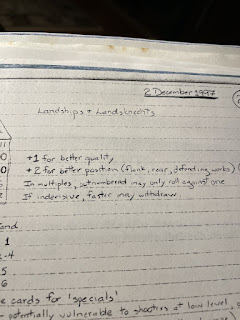 2 December 1997
Landships & Landsknechts
+1 for better quality
+2 for better position (flank, rear, defending works)
In multiples, outnumbered may only roll against one
If indecisive, faster may withdraw.
1
-4
.5
6
e cards for 'specials'
- potentially vulnerable to shooting at low level